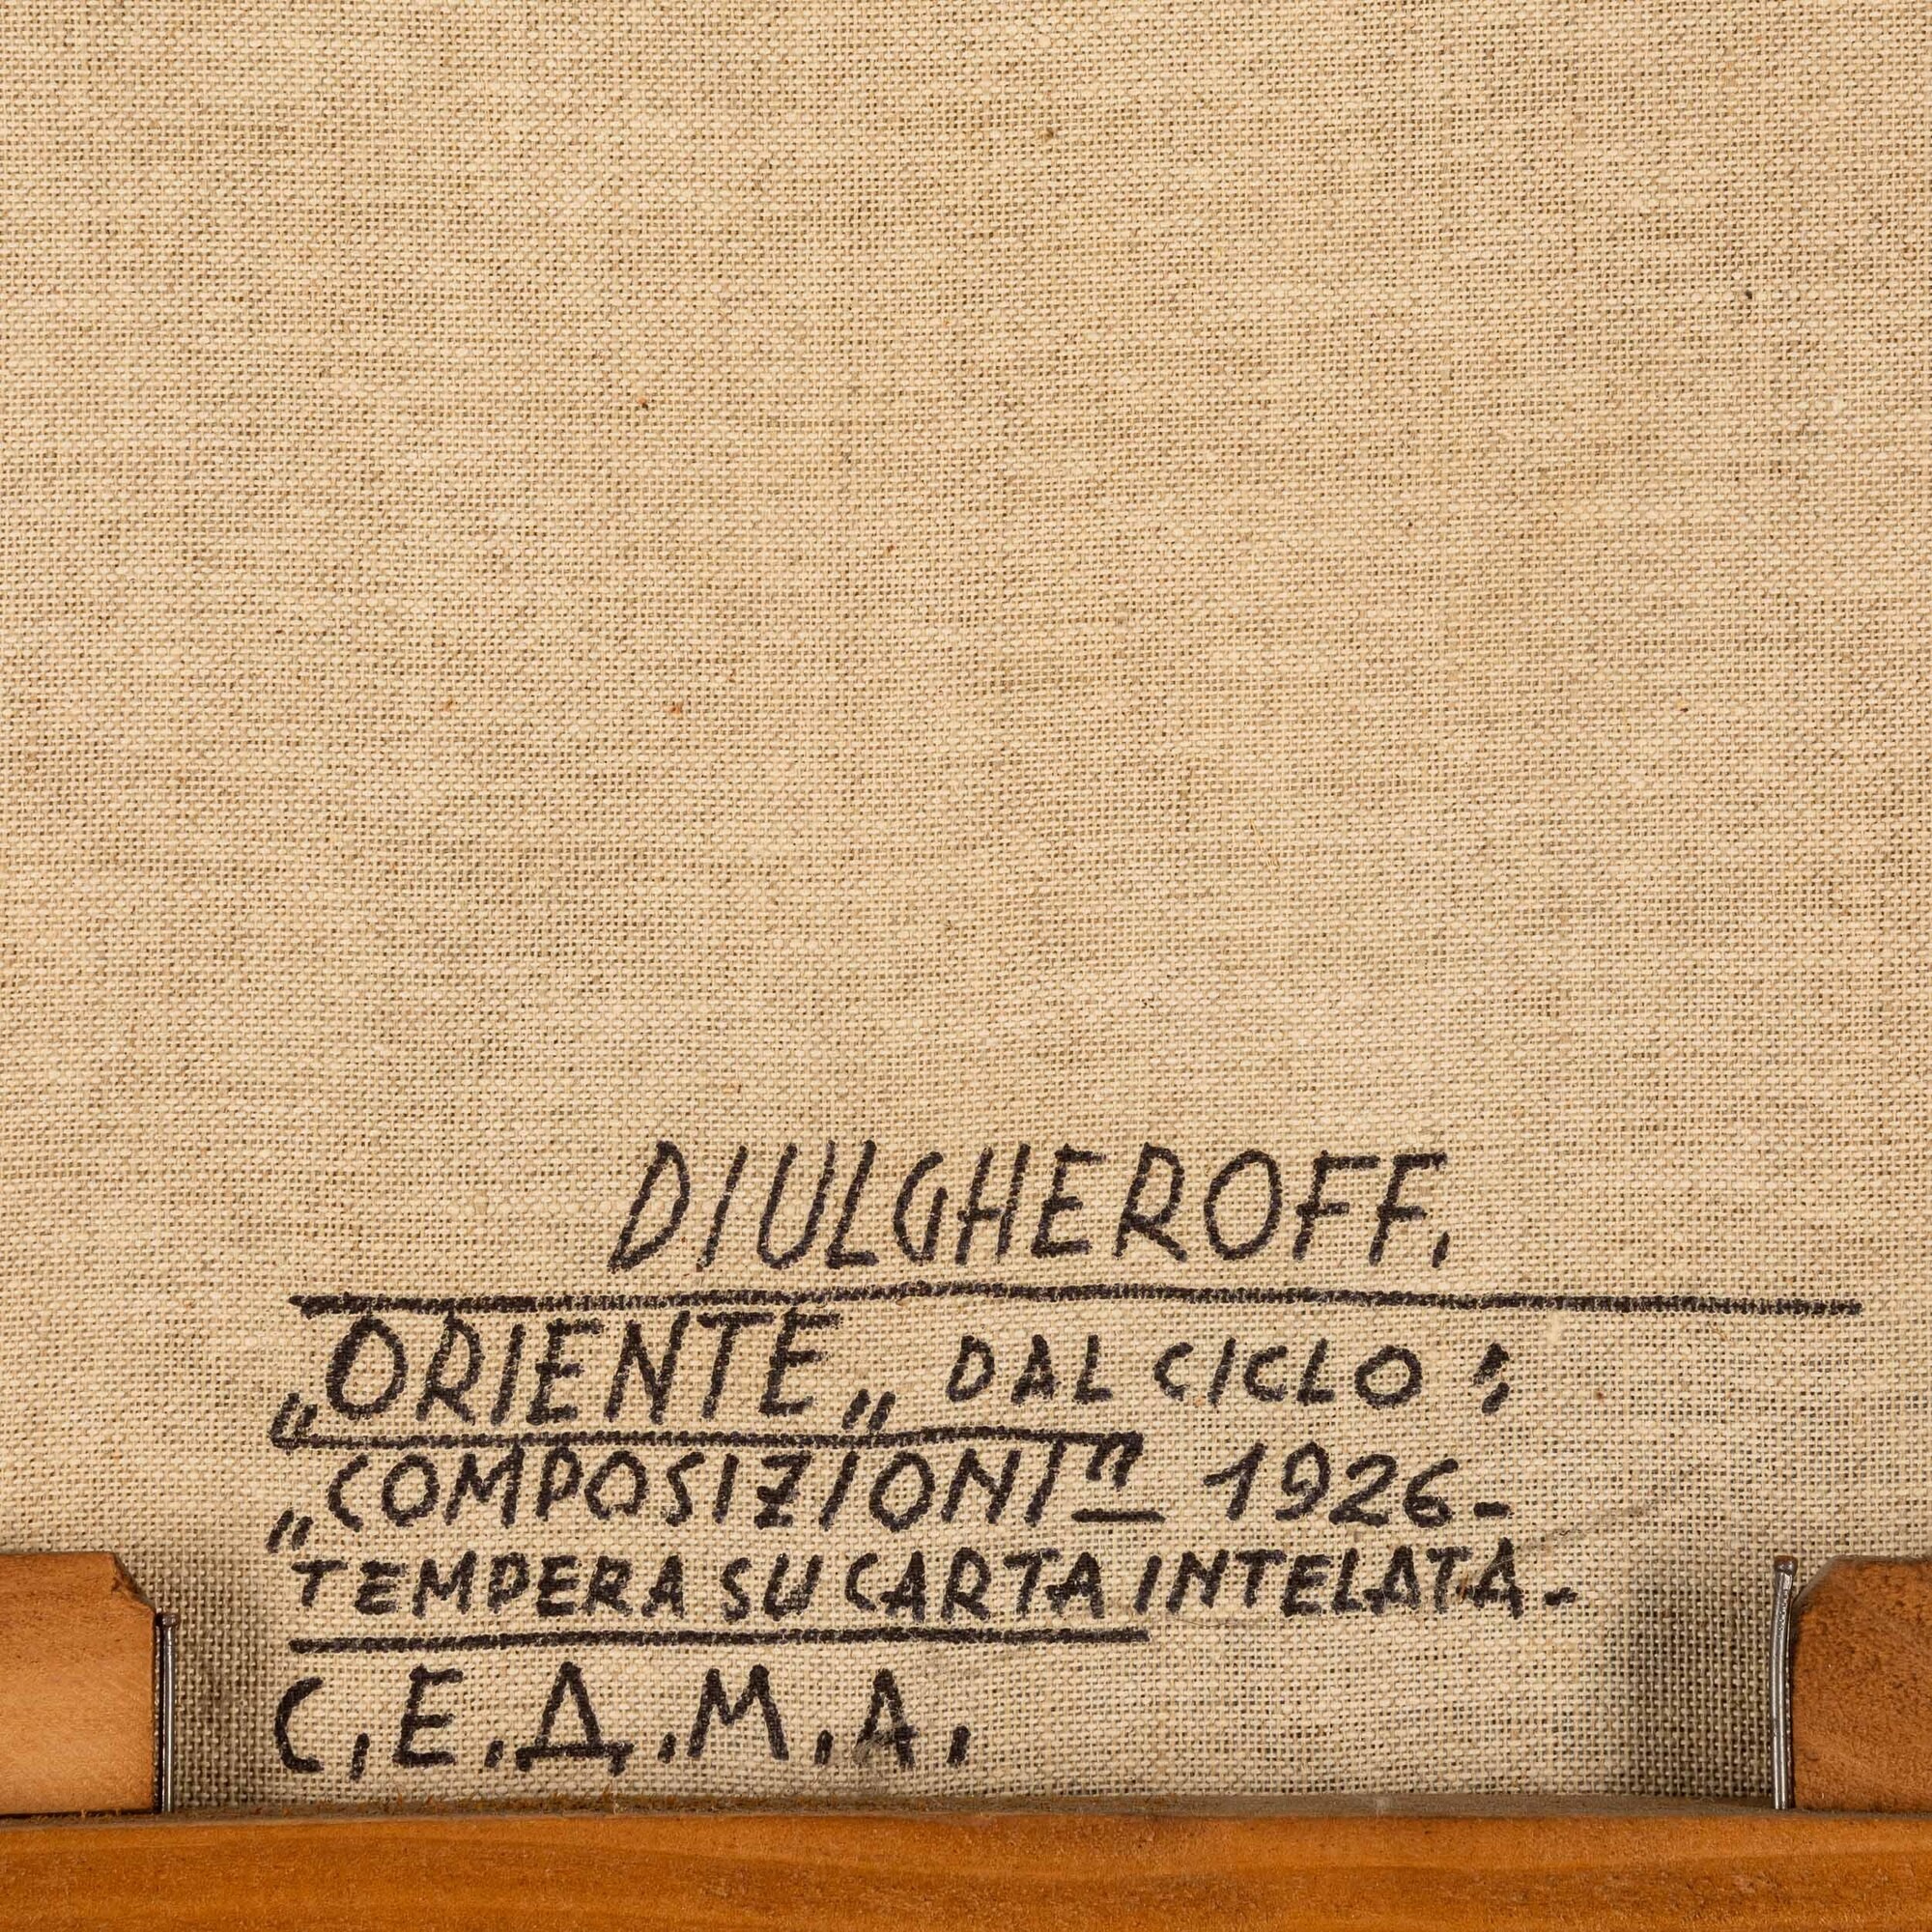 DIULGHEROFF.
„ORIENTE„ DAL CICLO:
„COMPOSIZIONI" — 1926-
TEMPERA SU CARTA INTELATA.-
С.Е.Д.М.А.